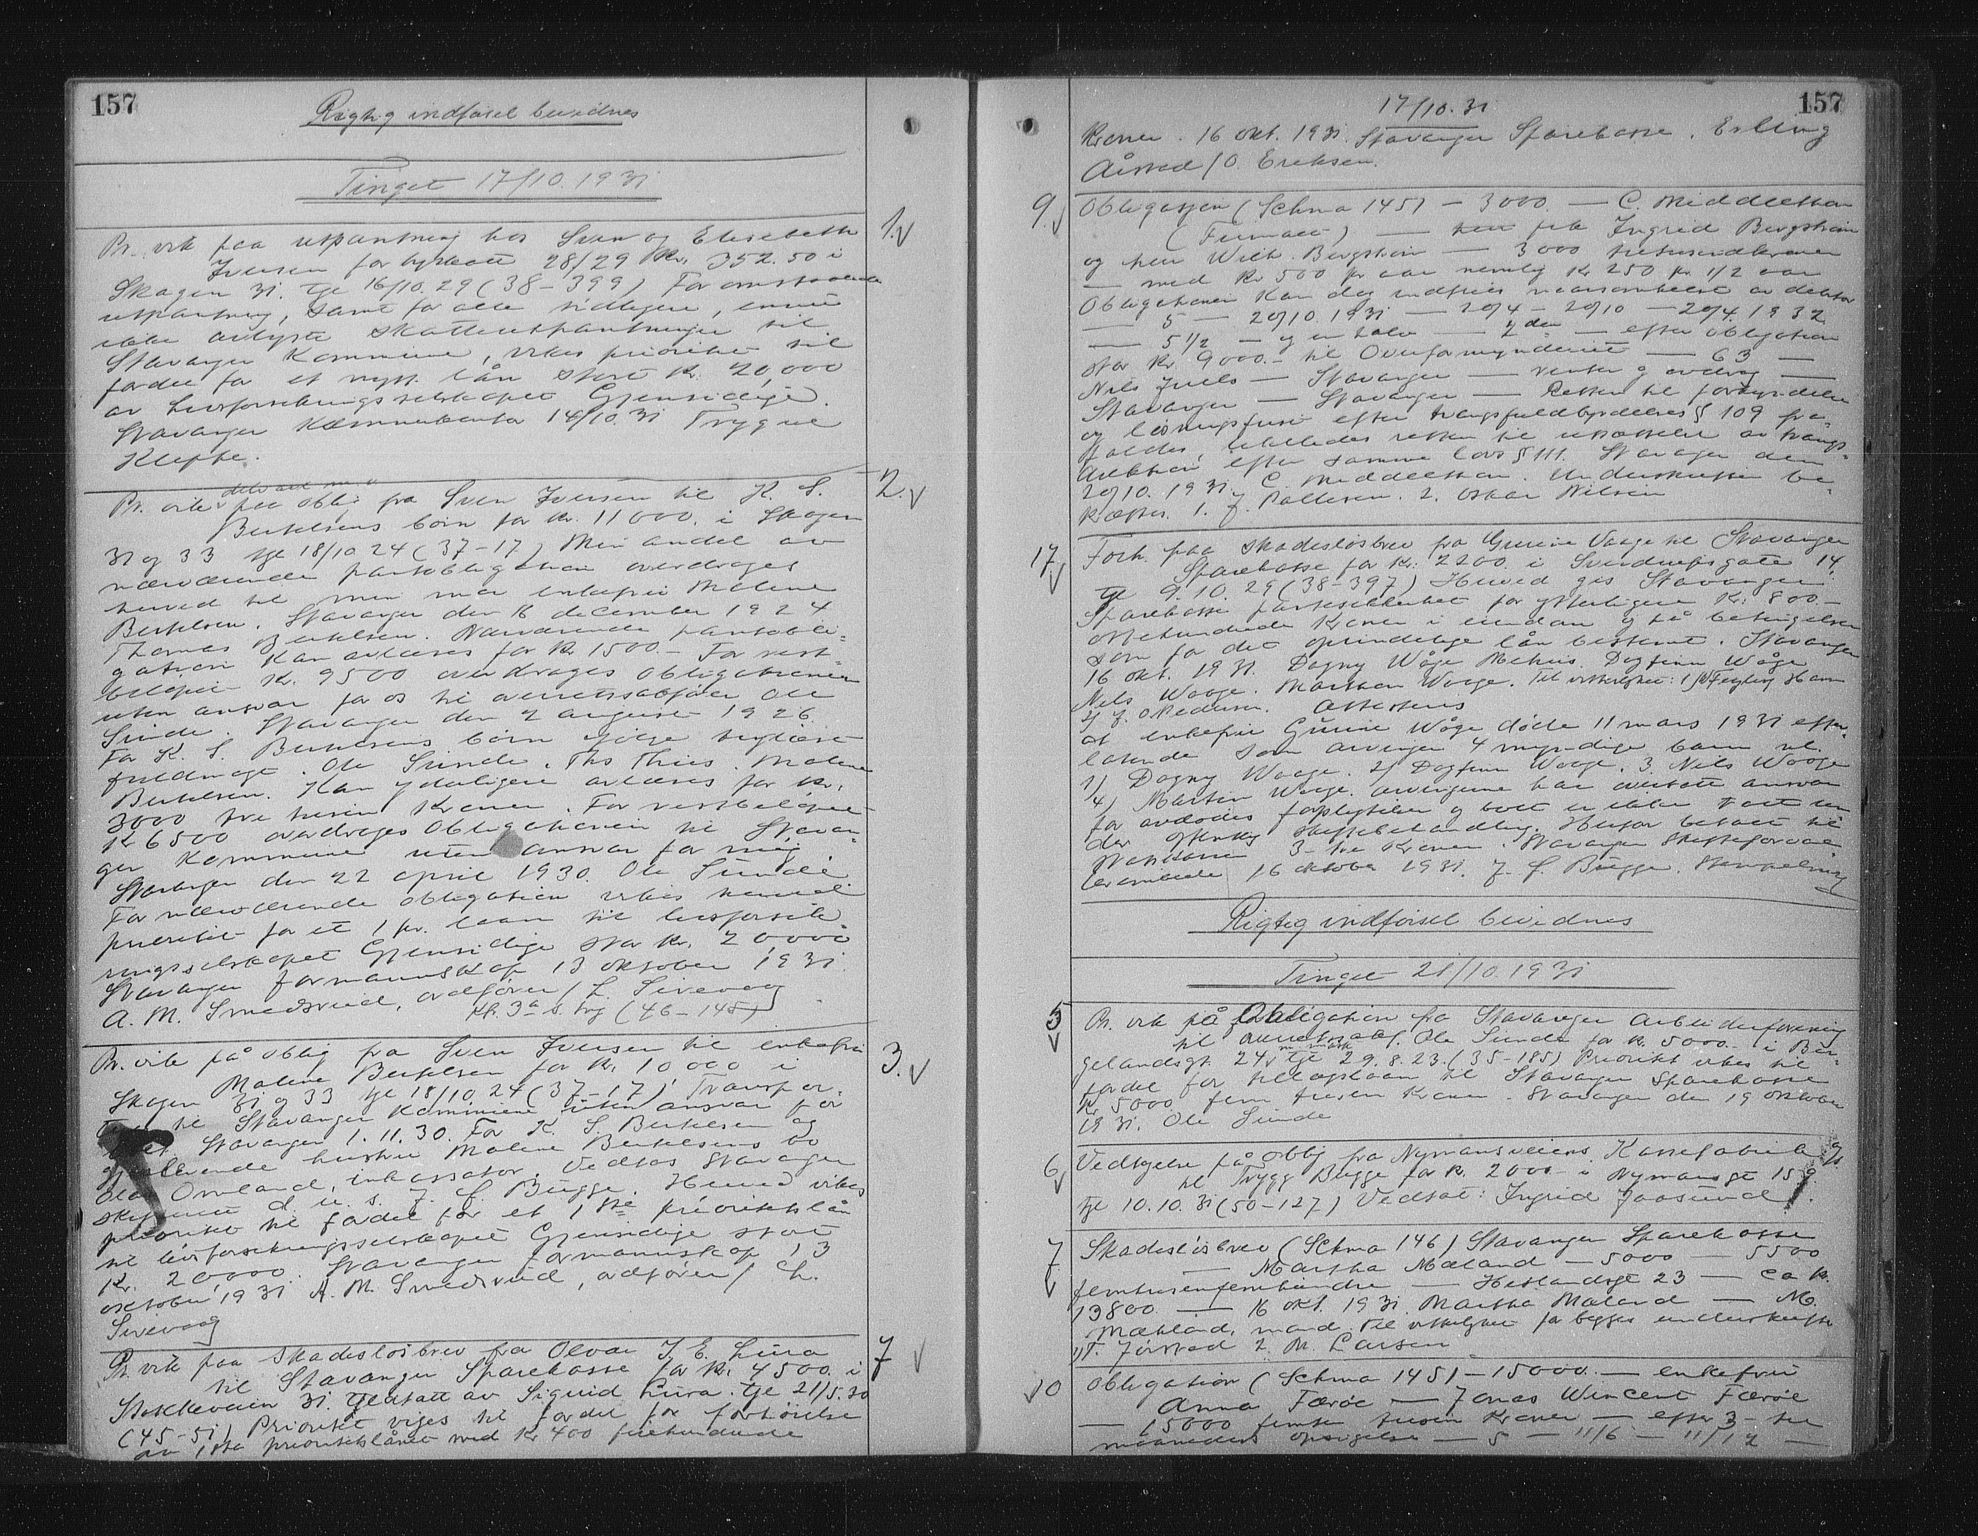 157
Rigtig indførsel bevidnes
Tinget 17/10.1931
1.
Pr. vik paa utpantning hos Sven og Elisabeth
Iversen for byskatt 28/29 Kr. 352.50 i
Skagen 31. tgl 16/10.29 (38-399) For omstaaende
utpantning, samt for alle tidligere, ennu
ikke avlyste skatteutpantninger til
Stavanger Kommune, vikes prioritet til
fordel for et nytt lån stort Kr. 20,000
av Livsforsikringsselskapet Gjensidige.
Stavanger Kæmnerkontor 14/10.31 Trygve
Kleppe.
2.
Pr. vik paa oblig fra Sven Iversen til K. S.
Berkelsens børn for Kr. 11000. i Skagen
31 og 33 tgl 18/10.24 (37-17) Min andel av
nærværende pantobligation overdrages
herved til min mor enkefru Malene
Berkelsen. Stavanger den 16 december 1924
Thomas Berkelsen. Nærværende pantobli-
gation kan avlæses for Kr 1500.- For rest-
beløpet Kr. 9500 overdrages obligationen
uten ansvar for os til overretssakfører Ole
Sunde. Stavanger den 2 august 1926.
For K. S. Berkelsens børn ifølge tinglæst
fuldmagt. Ole Sunde. Ths Thiis. Malene
Berkelsen. Kan yderligere avlæses for Kr.
3000 tre tusen Kroner. For restbeløpet
Kr 6500 overdrages obligationen til Stavan-
ger Kommune uten ansvar for mig.
Stavanger den 22 april 1930. Ole Sunde.
For nærværende obligation vikes herved
prioritet for et 1 pr. laan til livsforsik-
ringsselskapet Gjensidige stor Kr. 20,000
Stavanger formannskap 13 oktober 1931
A. M. Smedsrud, ordfører / L. Sirevaag
(46-145)
3.
Pr. vik på oblig fra Sven Iversen til enkefru
Malene Berkelsen for Kr. 10000 i
Skagen 31 og 33 tgl 18/10.24 (37-17) Transpor-
til Stavanger Kommune uten ansvar for
Stavanger 1.11.30. For K. S. Berkelsen og
gjenlevende hustru Malene Berkelsens bo
Olaf Omland, inkassator. Vedtas Stavanger
skifterett d. u. s. J. G. Bugge. Herved vikes
prioritet til fordel for et 1ste prioritetslån
til livsforsikringsselskapet Gjensidige stort
Kr. 20000. Stavanger formannskap 13
oktober 1931 A. M. Smedsrud, ordfører / Ch.
Sirevaag
7
Pr. vik paa skadesløsbrev fra Olvar J. E. Lura
til Stavanger Sparekasse for Kr. 4500. i
Stokkeveien 31. utstatt av Sigurd Lura. tgl 21/5.30
(45-51) Prioritet viges til fordel for forhøielse
av 1ste prioritetslånet med Kr 400 firehundrede
157
17/10.31
Kroner. 16 okt. 1931. Stavanger Sparekasse. Erling
Aarstad / O. Eriksen.
9.
Obligasjon (Schma 145) - 3000. - C. Middelthon
- frk Ingrid Bergstrøm
og herr Wilh. Bergstrøm - 3000 tretusendkroner
- med Kr 500 pr aar nemlig Kr 250 pr. 1/2 aar
Obligationen kan dog indfries naarsomhelst av debitor
- 5 - 20/10.1931 - 20/4 - 20/10 - 20/4.1932
- 5 1/2 - og en halv - 2den - efter obligation
stor Kr 9000.- til Overformynderiet - 63 -
Nils Juels - Stavanger - renter og avdrag -
Stavanger - Stavanger - Retten til forkyndelse
og løsningsfrist efter tvangsfuldbyrdelses § 109 fra-
faldes, likeledes retten til utsættelse av tvangs-
auktion efter samme lovs § 111. Stavanger den
20/10.1931. C. Middelthon. Underskriften be-
kræftes. 1. J. Pallesen. 2. Oskar Nilsen
17.
Forh. paa skadesløsbrev fra Gurine Vaage til Stavanger
Sparekasse for Kr. 2200. i Sverdrupsgate 14.
tgl 9.10.29 (38-397) Herved gis Stavanger
Sparekasse pantesikkerhet for ytterligere Kr. 800-
ottehundrede Kroner i eiendom og på betingelser
som for det oprindelige lån bestemt. Stavanger
16 okt. 1931. Dagny Våge Dagfinn Våge
Nils Waage. Marthon Waage. Til vitterlighet:
2/ J. Pedersen. Attesteres
at enkefru Gurine Våge døde 11 mars 1931 efter-
latende som arvinger 4 myndige barn nl.
1) Dagny Waage. 2) Dagfinn Waage. 3. Nils Waage
4) Martin Waage. Arvingene har overtatt ansvar
for avdødes forpligtelser og boet er ikke tatt un-
der offentlig skiftebehandling. Herfor betalt til
Statskassen 3- tre Kroner. Stavanger Skifteforvalter-
embede 16 oktober 1931. J. G. Bugge. Stempeling
Rigtig indførsel bevidnes
Tinget 21/10.1931
5
Pr. vik på Obligation fra Stavanger Arbeiderforening
til Ole Sunde for Kr. 5000.- i Ber-
gelandsgt. 24, tgl 29.8.23. (35-185) Prioritet vikes til
fordel for tillægslaan til Stavanger Sparekasse
Kr 5000 fem tusen Kroner. Stavanger den 19 oktober
1931. Ole Sunde
6
Vedtagelse på oblig fra Nymansveiens Kassefabrik
til Trygg Bugge for Kr. 2000.- i Nymansgt 15
tgl 10.10.31 (50-127) Vedtat: Ingrid Jaasund.
7
Skadesløsbrev (Schma 146) Stavanger Sparekasse
- Martha Mæland - 5000 - 5500
femtusenfemhundre - Hetlandsgt 23 - ca Kr.
13800 - 16 okt. 1931. Martha Mæland - M.
Mæhland, mand. Til vitterlighet for begges underskrifter
1) T. Jørstad 2. M. Larsen
10
Obligation (Schma 145) - 15000.- enkefru
Anna Færøe - Jonas Wincent Færøe
- 15000 femten tusen Kroner - efter 3- tre
maaneders opsigelse - 5 - 11/6 - 11/12 -